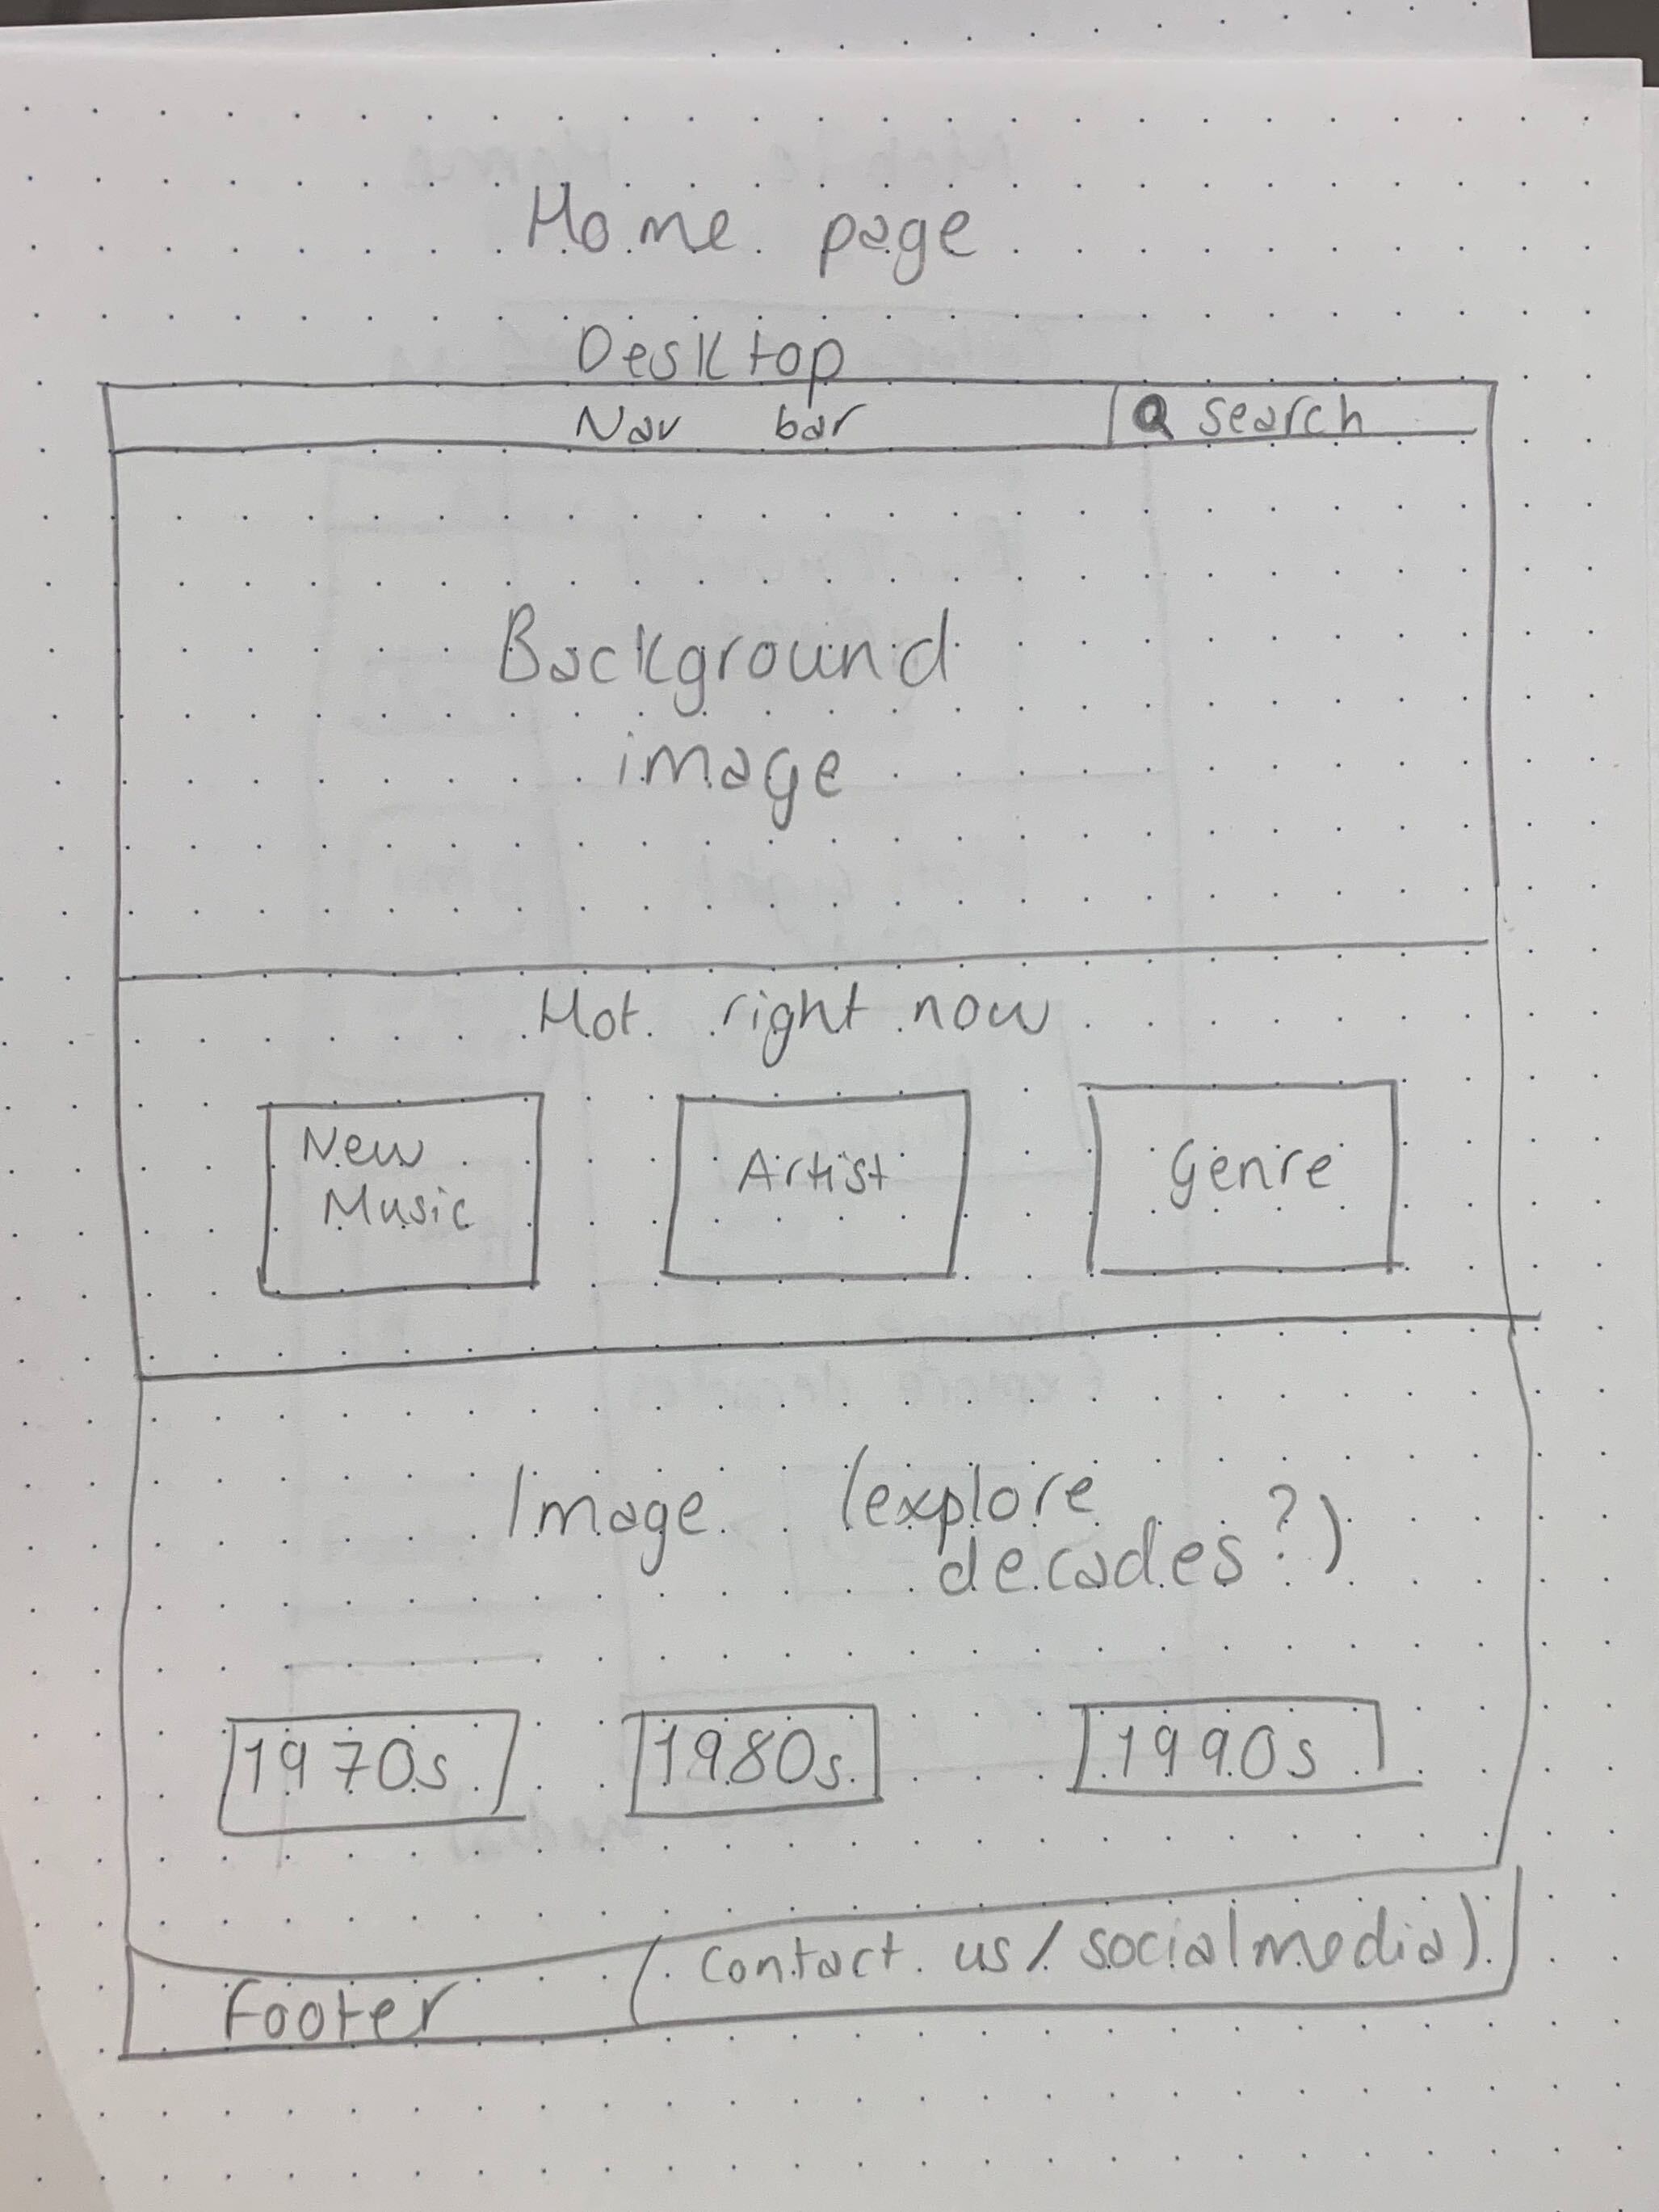 Home page
Desktop
Nav bar
search
Background
image
Hot right now
New
Music
Artist
Genre
Image (explore
decades?)
1970s
1980s
1990s
Footer (contact us / social media)